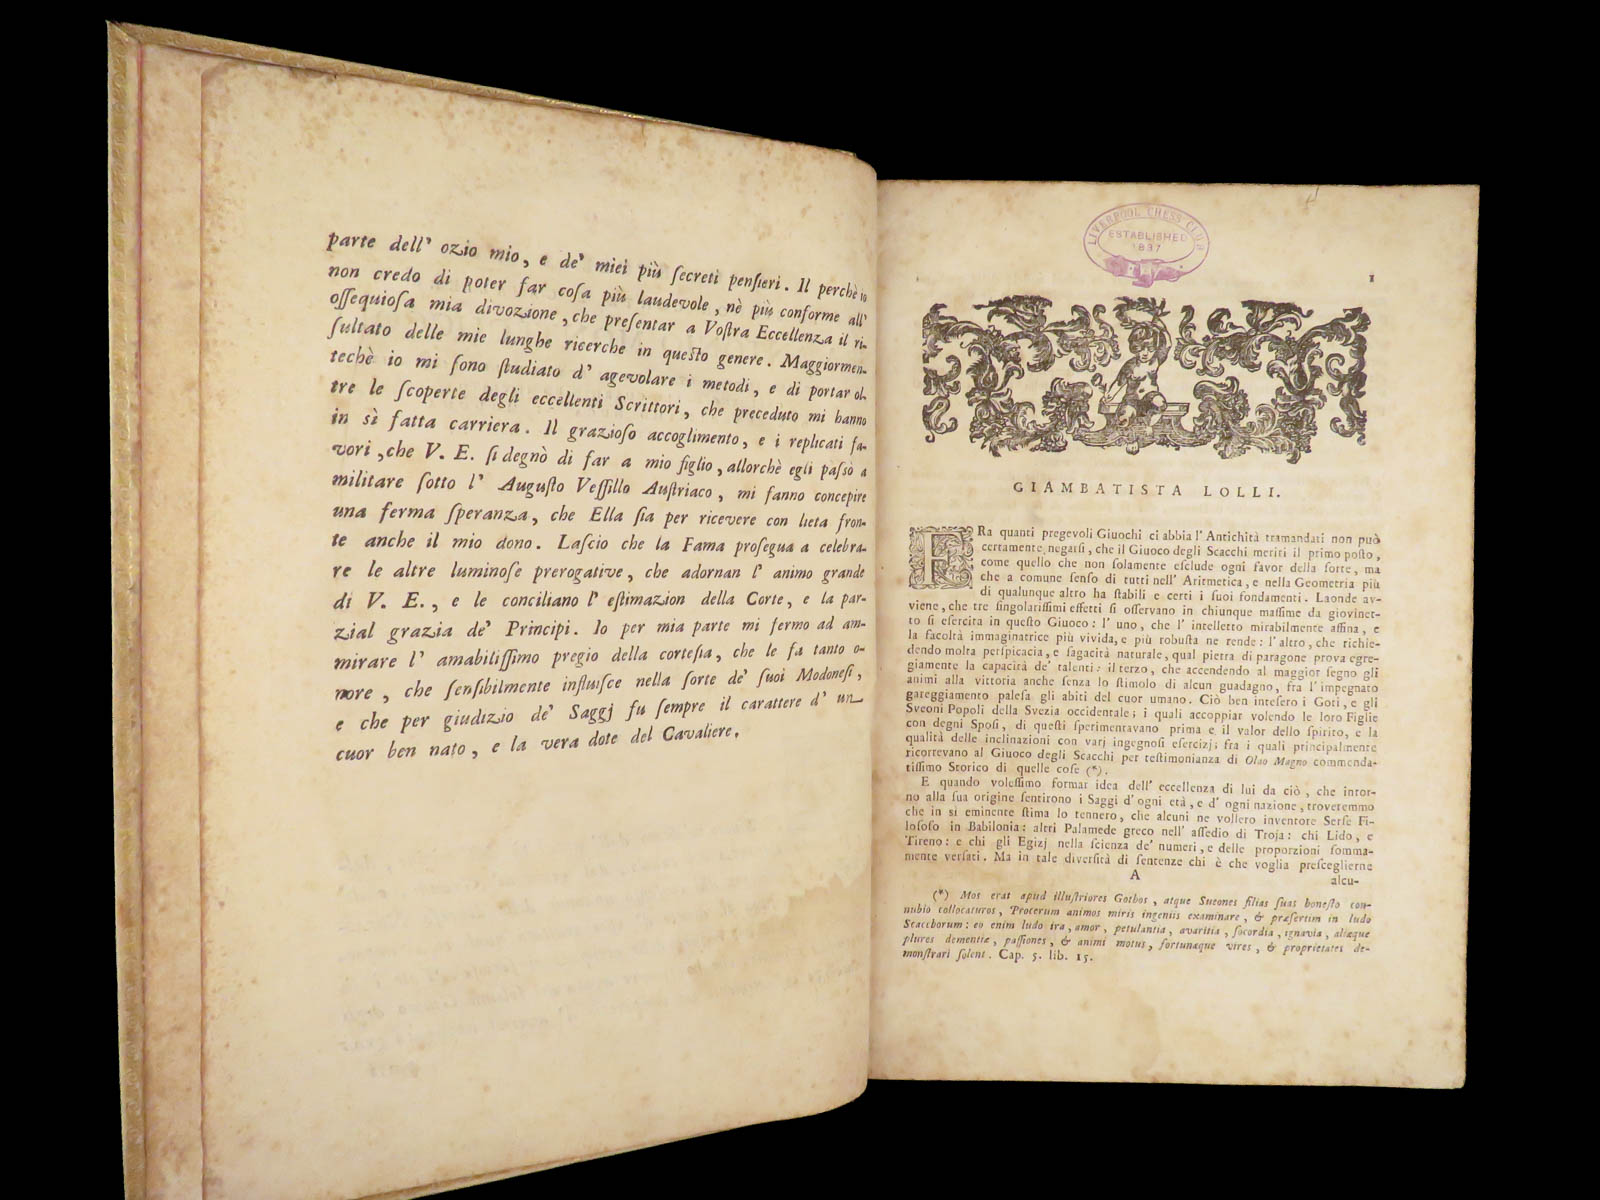 parte dell' ozio mio, e de' miei più ſecreti penſieri. Il perchè io
non credo di poter far coſa più laudevole, nè più conforme all'
oſſequioſa mia divozione, che preſentar a Voſtra Eccellenza il ri-
ſultato delle mie lunghe ricerche in queſto genere. Maggiormen-
techè io mi ſono ſtudiato d' agevolare i metodi, e di portar ol-
tre le ſcoperte degli eccellenti Scrittori, che preceduto mi hanno
in sì fatta carriera. Il grazioſo accoglimento, e i replicati fa-
vori, che V. E. ſi degnò di far a mio figlio, allorchè egli paſsò a
militare ſotto l' Auguſto Veſſillo Auſtriaco, mi fanno concepire
una ferma ſperanza, che Ella ſia per ricevere con lieta fron-
te anche il mio dono. Laſcio che la Fama proſegua a celebra-
re le altre luminoſe prerogative, che adornan l' animo grande
di V. E., e le conciliano l' eſtimazion della Corte, e la par-
zial grazia de' Principi. Io per mia parte mi fermo ad am-
mirare l' amabiliſſimo pregio della corteſia, che le fa tanto o-
nore, che ſenſibilmente influiſce nella ſorte de' ſuoi Modoneſi,
e che per giudizio de' Saggj fu ſempre il carattere d' un
cuor ben nato, e la vera dote del Cavaliere.
LIVERPOOL CHESS CLUB
ESTABLISHED
1837
1
GIAMBATISTA LOLLI.
FRa quanti pregevoli Giuochi ci abbia l' Antichità tramandati non può
certamente negarſi, che il Giuoco degli Scacchi meriti il primo poſto,
come quello che non ſolamente eſclude ogni favor della ſorte, ma
che a comune ſenſo di tutti nell' Aritmetica, e nella Geometria più
di qualunque altro ha ſtabili e certi i ſuoi fondamenti. Laonde av-
viene, che tre ſingolariſſimi effetti ſi oſſervano in chiunque maſſime da giovinet-
to ſi eſercita in queſto Giuoco: l' uno, che l' intelletto mirabilmente affina, e
la facoltà immaginatrice più vivida, e più robuſta ne rende: l' altro, che richie-
dendo molta perſpicacia, e ſagacità naturale, qual pietra di paragone prova egre-
giamente la capacità de' talenti: il terzo, che accendendo al maggior ſegno gli
animi alla vittoria anche ſenza lo ſtimolo di alcun guadagno, fra l' impegnato
gareggiamento paleſa gli abiti del cuor umano. Ciò ben inteſero i Goti, e gli
Sveoni Popoli della Svezia occidentale; i quali accoppiar volendo le loro Figlie
con degni Spoſi, di queſti ſperimentavano prima e il valor dello ſpirito, e la
qualità delle inclinazioni con varj ingegnoſi eſercizj; fra i quali principalmente
ricorrevano al Giuoco degli Scacchi per teſtimonianza di Olao Magno commenda-
tiſſimo Storico di quelle coſe (*).
E quando voleſſimo formar idea dell' eccellenza di lui da ciò, che intor-
no alla ſua origine ſentirono i Saggi d' ogni età, e d' ogni nazione, troveremmo
che in sì eminente ſtima lo tennero, che alcuni ne vollero inventore Serſe Fi-
loſofo in Babilonia: altri Palamede greco nell' aſſedio di Troja: chi Lido, e
Tireno: e chi gli Egizj nella ſcienza de' numeri, e delle proporzioni ſomma-
mente verſati. Ma in tale diverſità di ſentenze chi è che voglia preſceglierne
A
alcu-
(*) Mos erat apud illuſtriores Gothos, atque Sueones filias ſuas honeſto con-
nubio collocaturos, Procerum animos miris ingeniis examinare, & præſertim in ludo
Scacchorum: eo enim ludo ira, amor, petulantia, avaritia, ſocordia, ignavia, aliæque
plures dementiæ, paſſiones, & animi motus, fortunæque vires, & proprietates de-
monſtrari ſolent. Cap. 5. lib. 15.